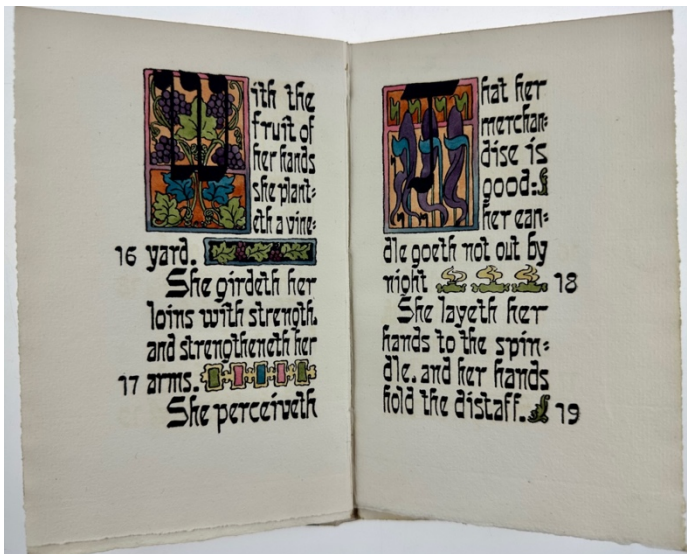 With the
fruit of
her hands
she plant=
eth a vine=
16 yard.
She girdeth her
loins with strength,
and strengtheneth her
17 arms.
She perceiveth
That her
merchan=
dise is
good:
her can=
dle goeth not out by
night 18
She layeth her
hands to the spin=
dle, and her hands
hold the distaff. 19